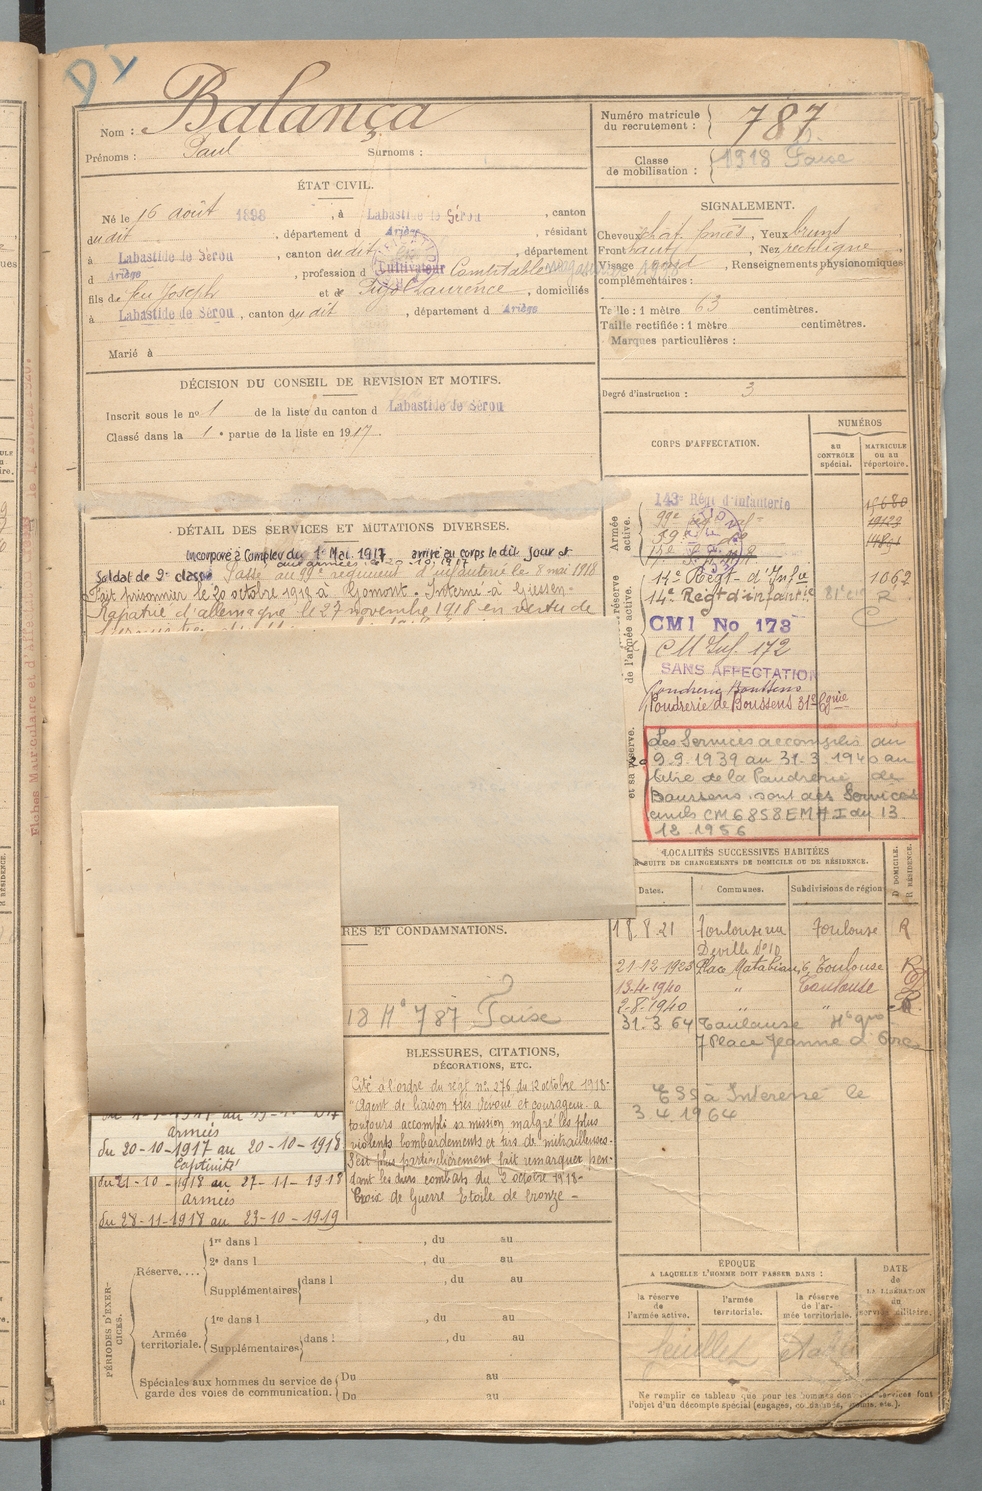 Nom : Balança
Prénoms : Paul Surnoms :
Numéro matricule du recrutement : 787
Classe de mobilisation : 1918
ÉTAT CIVIL.
Né le 16 août 1898, à Labastide de Sérou, canton
dudit, département d Ariège, résidant
à Labastide de Sérou, canton dudit, département
d Ariège, profession d Cultivateur Comptable
fils de feu Joseph et de Laurence, domiciliés
à Labastide de Sérou, canton dudit, département d Ariège
Marié à
SIGNALEMENT.
Cheveux chat. foncés, Yeux bruns
Front haut, Nez rectiligne
Visage rond, Renseignements physionomiques
complémentaires :
Taille : 1 mètre 63 centimètres.
Taille rectifiée : 1 mètre centimètres.
Marques particulières :
Degré d'instruction : 3
DÉCISION DU CONSEIL DE REVISION ET MOTIFS.
Inscrit sous le no 1 de la liste du canton d Labastide de Sérou
Classé dans la 1e partie de la liste en 1917.
CORPS D'AFFECTATION.
NUMÉROS
au CONTRÔLE spécial.
MATRICULE ou au répertoire.
Armée active.
143e Régt d'Infanterie
14e Régt d'Infie 1062
14e Régt d'infantie R
CMI No 173
CM Inf. 172
SANS AFFECTATION
Poudrerie Boussens
Poudrerie de Boussens 31e Cgnie
et sa réserve.
Les Services accomplis du
9.9.1939 au 31.3.1940 au
titre de la Poudrerie de
Boussens sont des Services
civils CM 6858 EMA I du 13
12 1956
DÉTAIL DES SERVICES ET MUTATIONS DIVERSES.
Incorporé à Compter du 1er Mai 1917 arrivé au corps le dit jour et
aux armées le 20-10-1917
Soldat de 2e classe Passé au 99e régiment d'infanterie le 8 mai 1918
Fait prisonnier le 20 octobre 1918 à Ribmont. Interné à Giessen.
Rapatrié d'allemagne le 27 novembre 1918 en vertu de
LOCALITÉS SUCCESSIVES HABITÉES
PAR SUITE DE CHANGEMENTS DE DOMICILE OU DE RÉSIDENCE.
Dates. Communes. Subdivisions de région
D DOMICILE.
R RÉSIDENCE.
18.8.21 Toulouse rue Deville No 10 Toulouse R
21-12-1925 Place Matabiau, 6, Toulouse R
13-4-1940 " Toulouse
2-8-1940 " " R
31.3 64 Toulouse
7 Place Jeanne d'Arc
ESS à Intéressé le
3.4.1964
RES ET CONDAMNATIONS.
787
BLESSURES, CITATIONS,
DÉCORATIONS, ETC.
Cité à l'ordre du régt no 276 du 12 octobre 1918-
"Agent de liaison très dévoué et courageux. a
toujours accompli sa mission malgré les plus
violents bombardements et tirs de mitrailleuses.
S'est plus particulièrement fait remarquer pen-
dant les durs combats du 2 octobre 1918-
Croix de Guerre Etoile de bronze-
armées
du 20-10-1917 au 20-10-1918
Captivité
du 21-10-1918 au 27-11-1918
Armées
du 28-11-1918 au 23-10-1919
PÉRIODES D'EXERCICES.
Réserve....
1re dans l , du au
2e dans l , du au
Supplémentaires dans l , du au
Armée territoriale.
1re dans l , du au
Supplémentaires dans l , du au
Spéciales aux hommes du service de garde des voies de communication.
Du au
Du au
ÉPOQUE
A LAQUELLE L'HOMME DOIT PASSER DANS :
la réserve de l'armée active.
l'armée territoriale.
la réserve de l'armée territoriale.
DATE de LA LIBÉRATION du service militaire.
Ne remplir ce tableau que pour les hommes dont les services font
l'objet d'un décompte spécial (engagés, condamnés, omis, etc.).